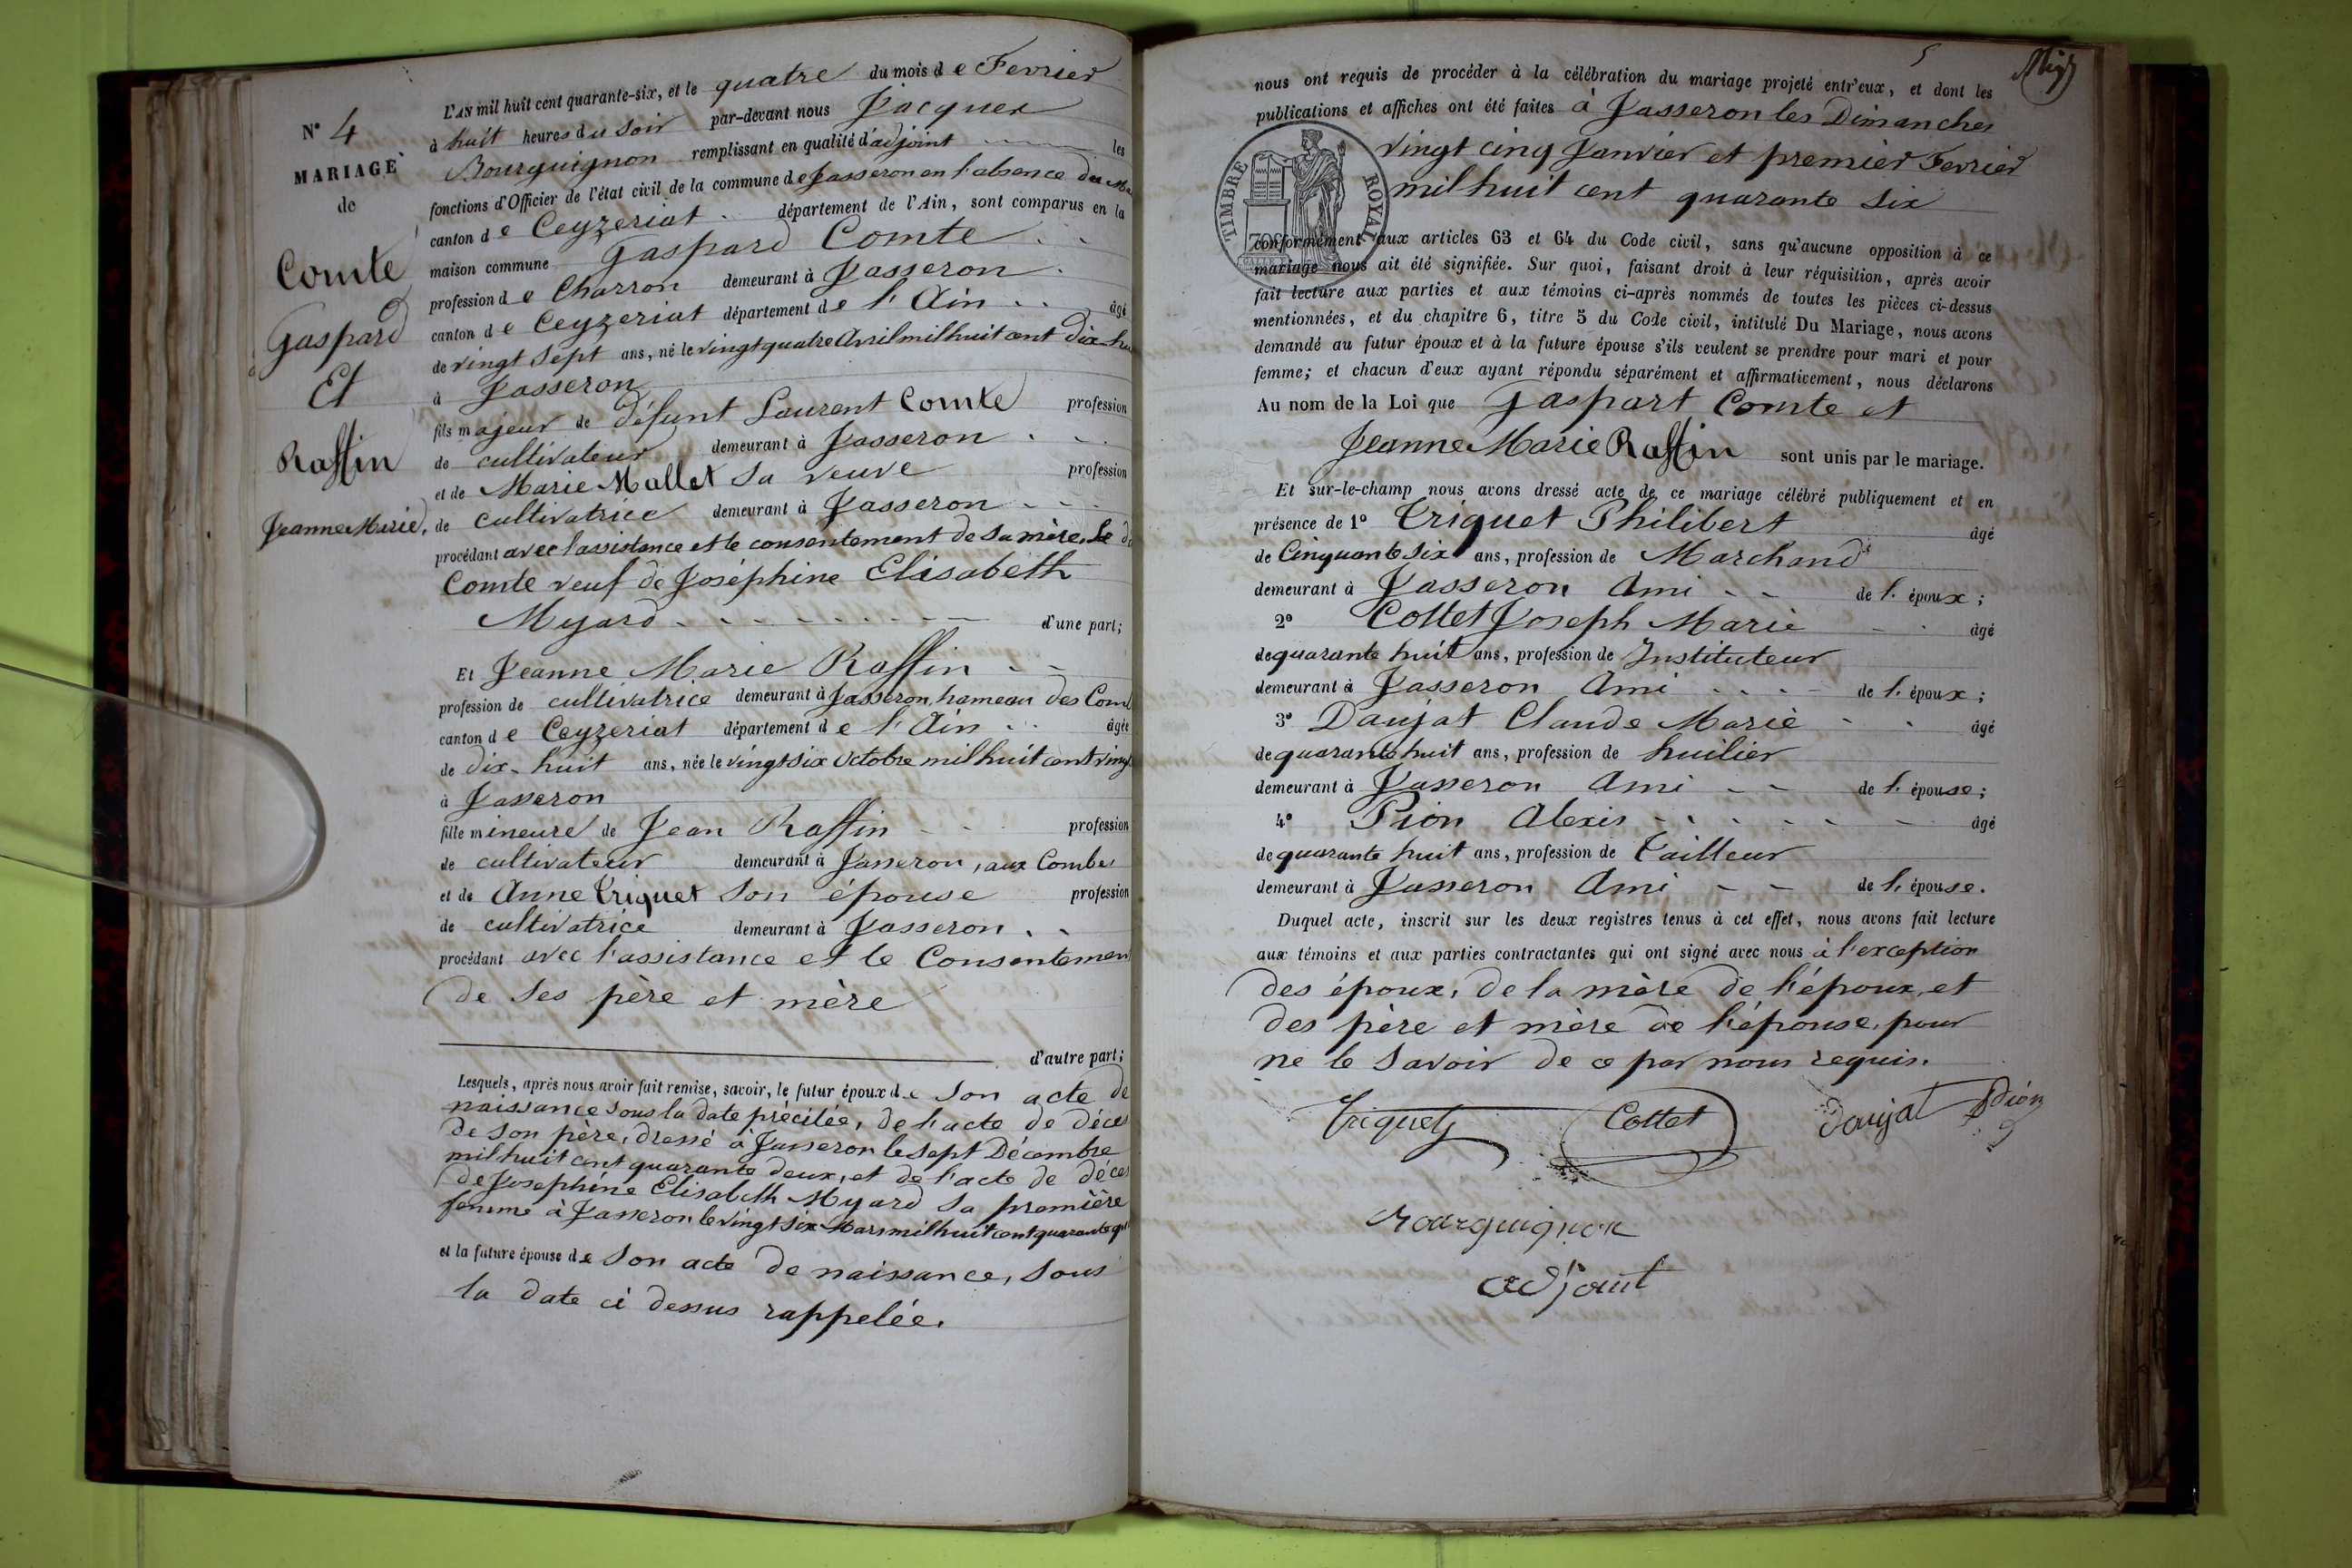 N° 4
MARIAGE
de
Comte
Gaspard
Et
Raffin
Jeanne Marie,
L'AN mil huit cent quarante-six, et le quatre du mois de Fevrier
à huit heures du soir par-devant nous Jacques
Bourguignon remplissant en qualité d'adjoint les
fonctions d'Officier de l'état civil de la commune de Jasseron en l'absence du
canton de Ceyzeriat département de l'Ain, sont comparus en la
maison commune Gaspard Comte
profession de Charron demeurant à Jasseron
canton de Ceyzeriat département de l'Ain âgé
de vingt sept ans, né le vingt quatre Avril mil huit cent dix-hu
à Jasseron
fils majeur de défunt Laurent Comte profession
de cultivateur demeurant à Jasseron
et de Marie Mallet sa veuve profession
de cultivatrice demeurant à Jasseron
procédant avec l'assistance et le consentement de sa mère. Le d
Comte veuf de Joséphine Elisabeth
Myard d'une part;
Et Jeanne Marie Raffin
profession de cultivatrice demeurant à Jasseron, hameau des Com
canton de Ceyzeriat département de l'Ain âgée
de dix-huit ans, née le vingt six octobre mil huit cent ving
à Jasseron
fille mineure de Jean Raffin profession
de cultivateur demeurant à Jasseron, aux Combes
et de Anne Triquet son épouse profession
de cultivatrice demeurant à Jasseron
procédant avec l'assistance et le Consentemen
de ses père et mère
d'autre part;
Lesquels, après nous avoir fait remise, savoir, le futur époux de son acte de
naissance sous la date précitée, de l'acte de décès
de son père, dressé à Jasseron le sept Décembre
mil huit cent quarante deux, et de l'acte de décès
de Josephine Elisabeth Myard sa première
femme à Jasseron le vingt six Mars mil huit cent quarante qu
et la future épouse de son acte de naissance, sous
la date ci dessus rappelée.
5
nous ont requis de procéder à la célébration du mariage projeté entr'eux, et dont les
publications et affiches ont été faites à Jasseron les Dimanches
vingt cinq Janvier et premier Fevrier
mil huit cent quarante six
TIMBRE ROYAL
conformément aux articles 63 et 64 du Code civil, sans qu'aucune opposition à ce
mariage nous ait été signifiée. Sur quoi, faisant droit à leur réquisition, après avoir
fait lecture aux parties et aux témoins ci-après nommés de toutes les pièces ci-dessus
mentionnées, et du chapitre 6, titre 5 du Code civil, intitulé Du Mariage, nous avons
demandé au futur époux et à la future épouse s'ils veulent se prendre pour mari et pour
femme; et chacun d'eux ayant répondu séparément et affirmativement, nous déclarons
Au nom de la Loi que Gaspart Comte et
Jeanne Marie Raffin sont unis par le mariage.
Et sur-le-champ nous avons dressé acte de ce mariage célébré publiquement et en
présence de 1° Triquet Philibert âgé
de Cinquante six ans, profession de Marchand
demeurant à Jasseron Ami de l'époux;
2° Cottet Joseph Marie âgé
de quarante huit ans, profession de Instituteur
demeurant à Jasseron Ami de l'époux;
3° Daujat Claude Marie âgé
de quarante huit ans, profession de huilier
demeurant à Jasseron Ami de l'épouse;
4° Pion Alexis âgé
de quarante huit ans, profession de Tailleur
demeurant à Jasseron Ami de l'épouse.
Duquel acte, inscrit sur les deux registres tenus à cet effet, nous avons fait lecture
aux témoins et aux parties contractantes qui ont signé avec nous à l'exception
des époux, de la mère de l'époux, et
des père et mère de l'épouse, pour
ne le savoir de ce par nous requis.
Triquet Cottet Daujat Pion
Bourguignon
adjoint